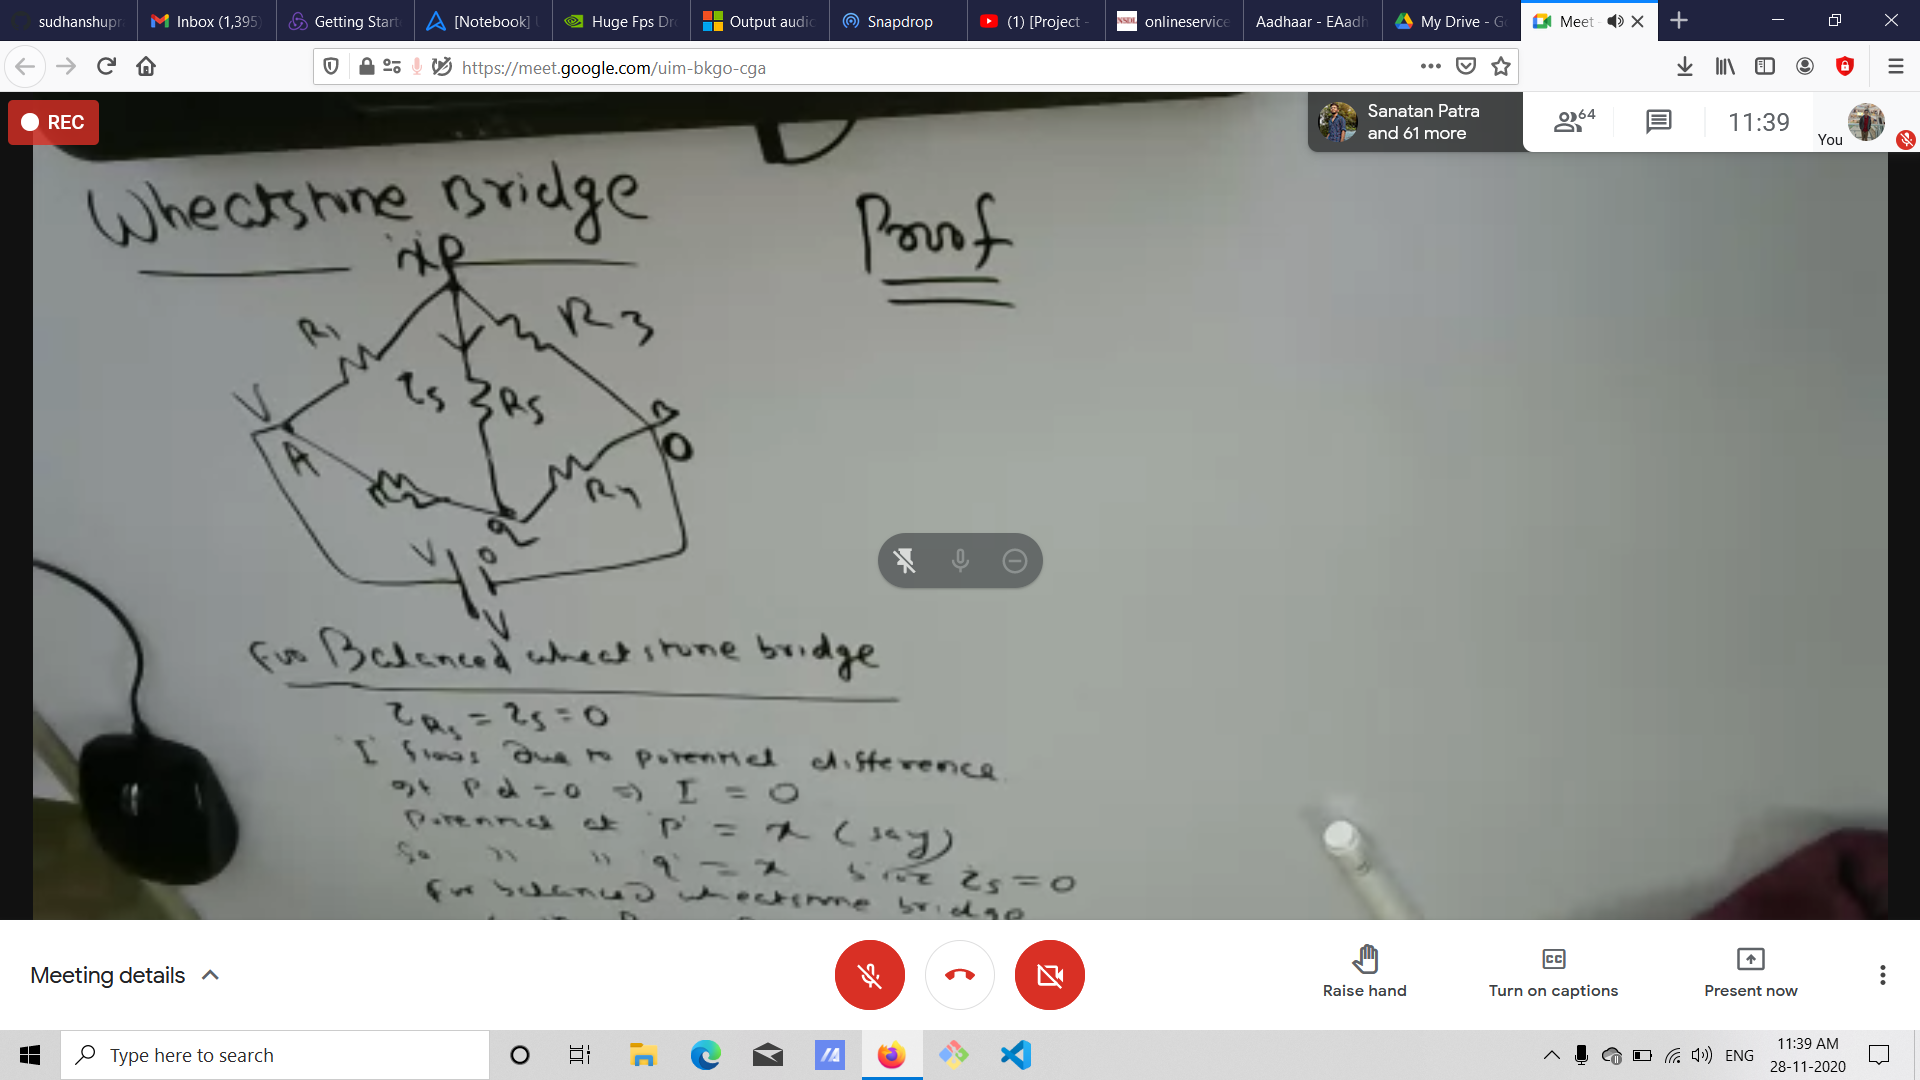 sudhanshupra
Inbox (1,395)
Getting Start
[Notebook]
Huge Fps Dr
Output audio
Snapdrop
(1) [Project -
NSDL onlineservice
Aadhaar - EAadh
My Drive - Go
Meet
https://meet.google.com/uim-bkgo-cga
REC
Sanatan Patra
and 61 more
64
11:39
You
Wheatstone Bridge
Proof
x P
R1
R3
i5
R5
V
A
B
0
R4
q
V
0
V
For Balanced wheatstone bridge
iR5 = i5 = 0
'I' flows due to potential difference
If Pd = 0 ⇒ I = 0
Potential at 'P' = x (say)
So 〃 〃 'q' = x since i5 = 0
For balanced wheatstone bridge
Meeting details
Raise hand
CC
Turn on captions
Present now
Type here to search
ENG
11:39 AM
28-11-2020